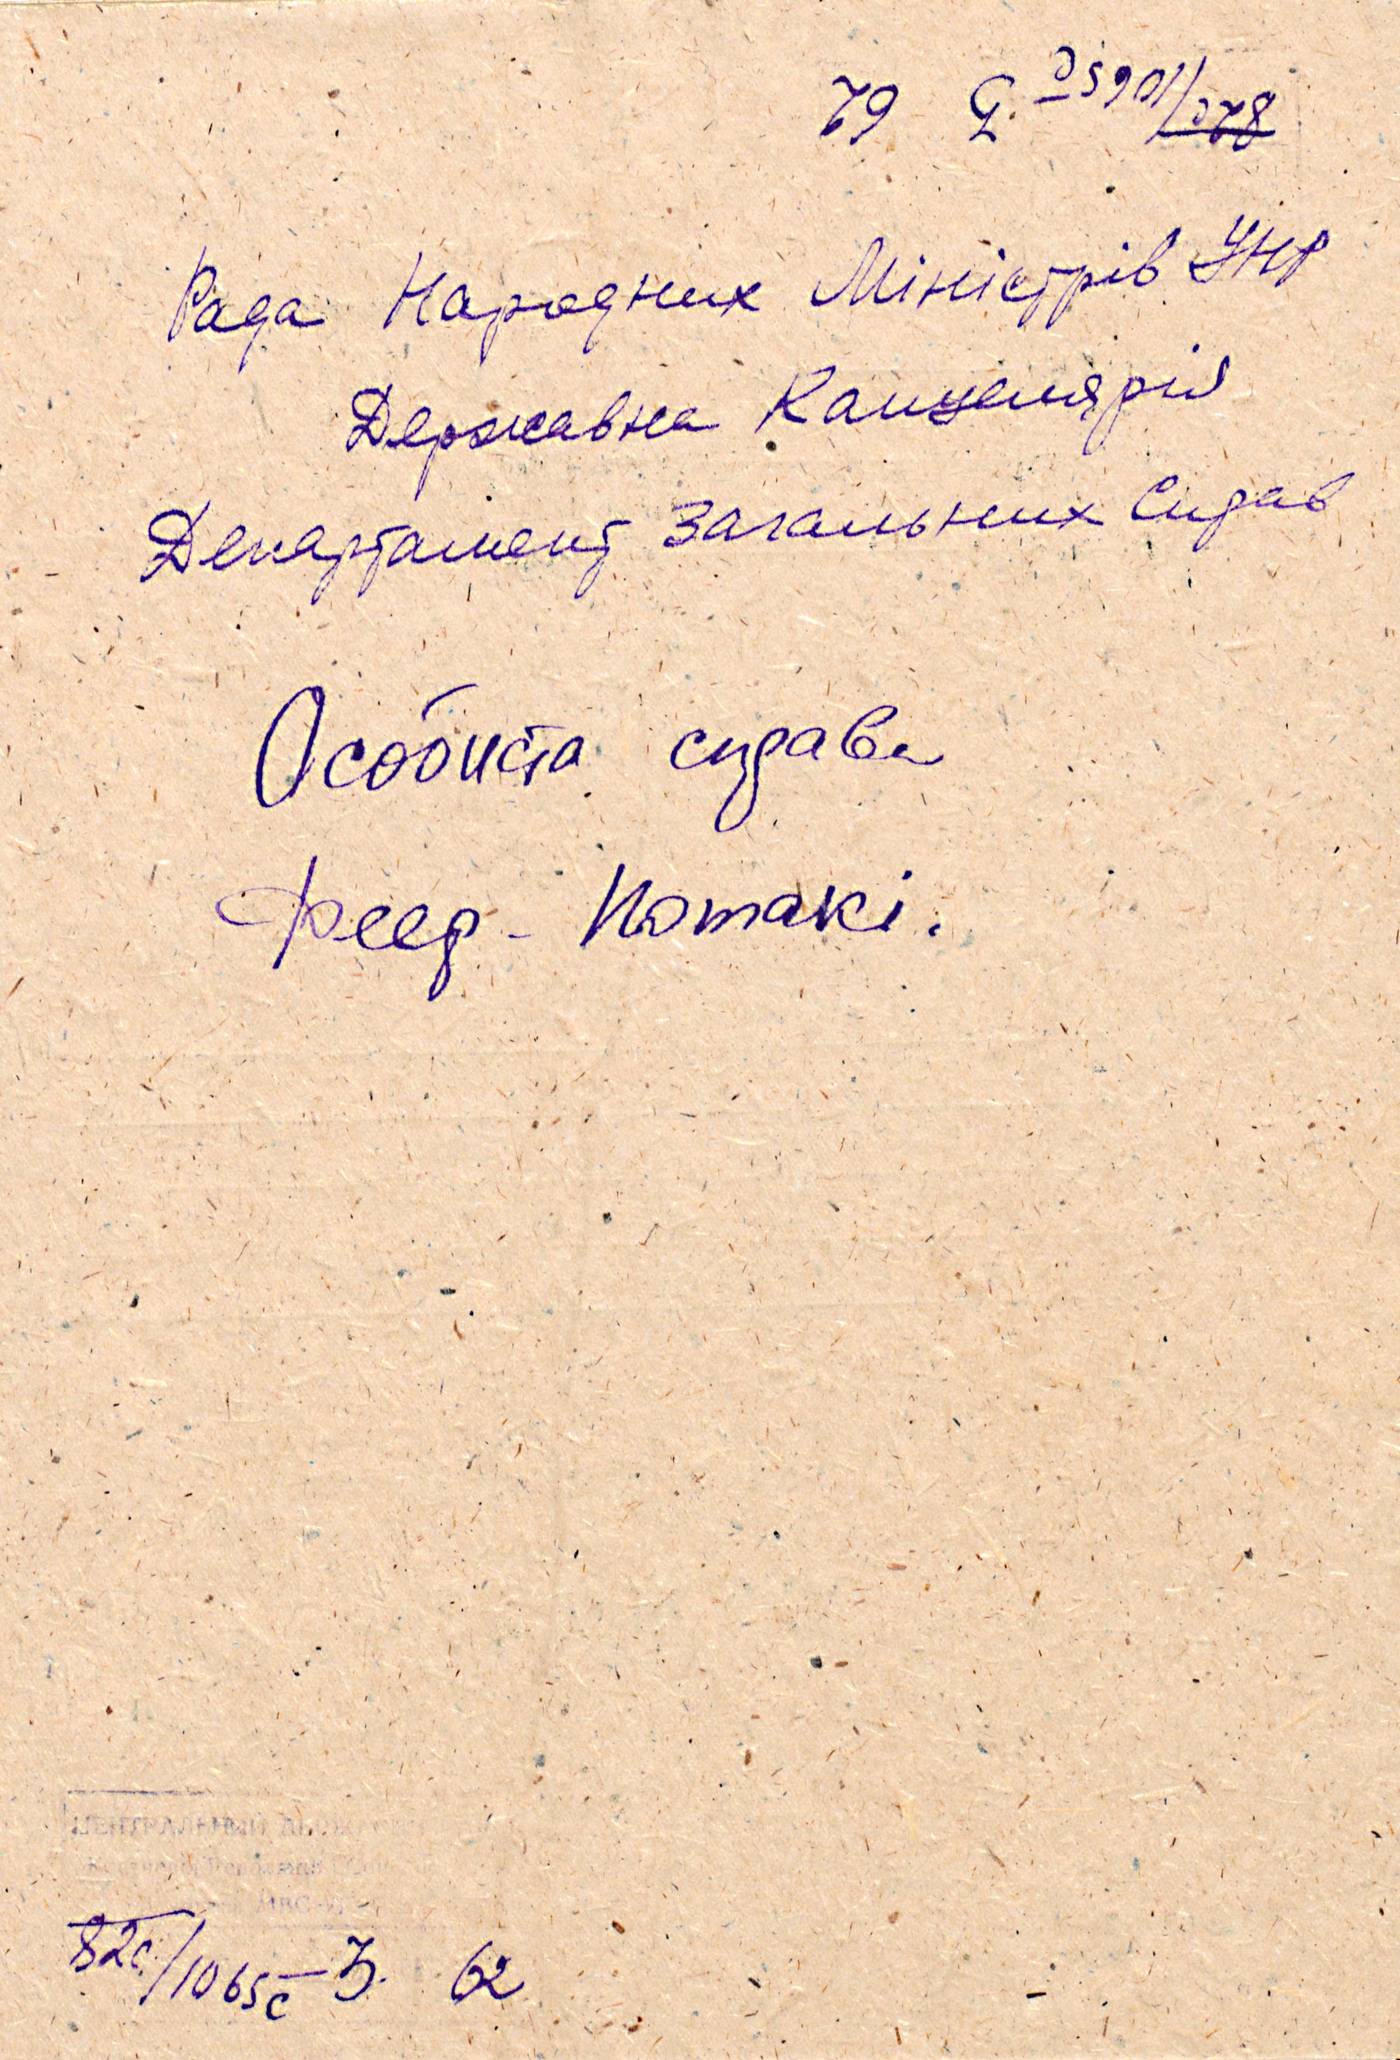 82с/1065с 3. 62
Рада Народних Міністрів УНР
Державна Канцелярія
Департамент Загальних Справ
Особиста справа
Феер-Потакі.
ЦЕНТРАЛЬНЫЙ
82с/1065с-3. 62